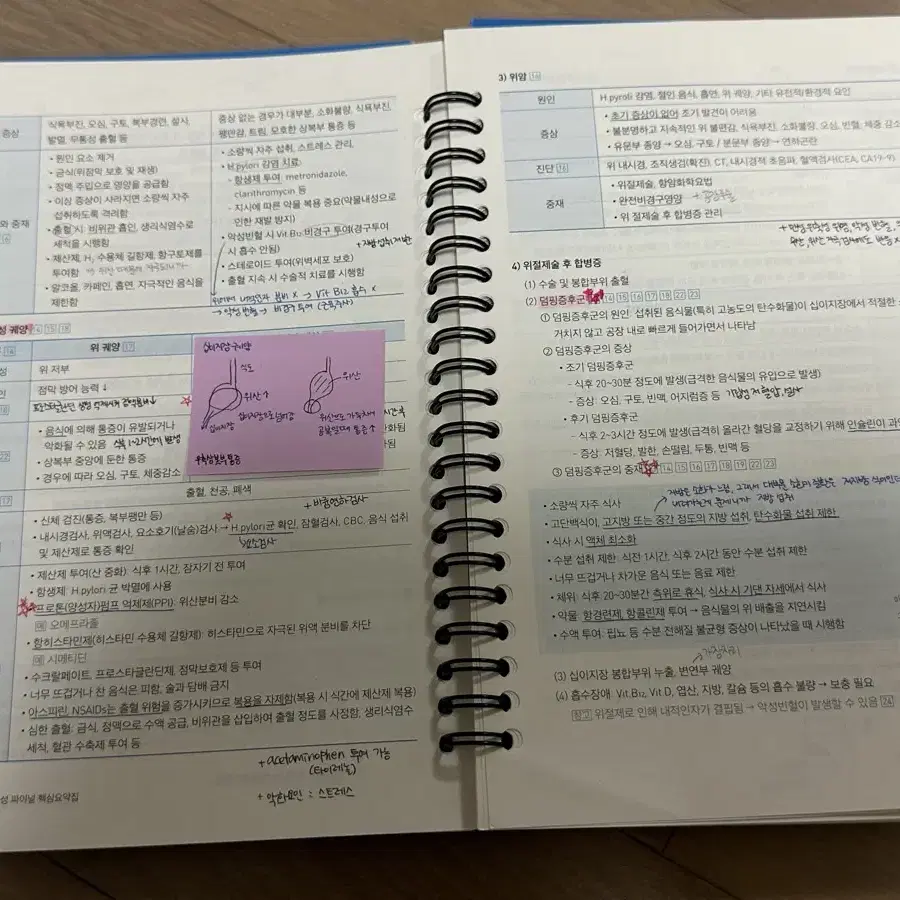 증상
식욕부진, 오심, 구토, 복부경련, 설사,
발열, 무통성 출혈 등
증상 없는 경우가 대부분, 소화불량, 식욕부진,
팽만감, 트림, 모호한 상복부 통증 등
중재
• 원인 요소 제거
• 금식(위점막 보호 및 재생)
• 정맥 주입으로 영양을 공급함
• 이상 증상이 사라지면 소량씩 자주
섭취하도록 격려함
• 출혈 시: 비위관 흡인, 생리식염수로
세척을 시행함
• 제산제, H₂ 수용체 길항제, 항구토제를
투여함
• 알코올, 카페인, 흡연, 자극적인 음식을
제한함
• 소량씩 자주 섭취, 스트레스 관리,
• H.pylori 감염 치료
- 항생제 투여: metronidazole,
clarithromycin 등
- 지시에 따른 약물 복용 중요(약물내성으로
인한 재발 방지)
• 악성빈혈 시 Vit.B₁₂ 비경구 투여(경구투여
시 흡수 안됨)
• 스테로이드 투여(위벽세포 보호)
• 출혈 지속 시 수술적 치료를 시행함
Vit B12 흡수 x
→ 악성빈혈 → 비경구 투여 (근육주사)
성 궤양
위 궤양 17
위 저부
점막 방어 능력 ↓
• 음식에 의해 통증이 유발되거나
악화될 수 있음
• 상복부 중앙에 둔한 통증
• 경우에 따라 오심, 구토, 체중감소
출혈, 천공, 폐색
십이지장궤양
식도
위산↑
십이지장
위산
우측상복부통증
+ 바륨연하검사
• 신체 검진(통증, 복부팽만 등)
• 내시경검사, 위액검사, 요소호기(날숨)검사 → H.pylori균 확인, 잠혈검사, CBC, 음식 섭취
및 제산제로 통증 확인
요소검사
• 제산제 투여(산 중화): 식후 1시간, 잠자기 전 투여
• 항생제: H.pylori 균 박멸에 사용
• 프로톤(양성자)펌프 억제제(PPI): 위산분비 감소
예 오메프라졸
• 항히스타민제(히스타민 수용체 길항제): 히스타민으로 자극된 위액 분비를 차단
예 시메티딘
• 수크랄페이트, 프로스타글란딘제, 점막보호제 등 투여
• 너무 뜨겁거나 찬 음식은 피함, 술과 담배 금지
• 아스피린, NSAIDs는 출혈 위험을 증가시키므로 복용을 자제함(복용 시 식간에 제산제 복용)
• 심한 출혈: 금식, 정맥으로 수액 공급, 비위관을 삽입하여 출혈 정도를 사정함, 생리식염수
세척, 혈관 수축제 투여 등
+ acetaminophen 투여 가능
(타이레놀)
+ 악화요인 : 스트레스
성 파이널 핵심요약집
3) 위암 16
원인
H.pyroli 감염, 절인 음식, 흡연, 위 궤양, 기타 유전적/환경적 요인
증상
• 초기 증상이 없어 조기 발견이 어려움
• 불분명하고 지속적인 위 불편감, 식욕부진, 소화불량, 오심, 빈혈, 체중 감소
• 유문부 종양 → 오심, 구토 / 분문부 종양 → 연하곤란
진단 16
위 내시경, 조직생검(확진), CT, 내시경적 초음파, 혈액검사(CEA, CA19-9)
중재
• 위절제술, 항암화학요법
• 완전비경구영양
• 위 절제술 후 합병증 관리
4) 위절제술 후 합병증
(1) 수술 및 봉합부위 출혈
(2) 덤핑증후군 14 15 16 17 18 22 23
① 덤핑증후군의 원인: 섭취된 음식물(특히 고농도의 탄수화물)이 십이지장에서 적절한
거치지 않고 공장 내로 빠르게 들어가면서 나타남
② 덤핑증후군의 증상
• 조기 덤핑증후군
- 식후 20~30분 정도에 발생(급격한 음식물의 유입으로 발생)
- 증상: 오심, 구토, 빈맥, 어지럼증 등
• 후기 덤핑증후군
- 식후 2~3시간 정도에 발생(급격히 올라간 혈당을 교정하기 위해 인슐린이
- 증상: 저혈당, 발한, 손떨림, 두통, 빈맥 등
③ 덤핑증후군의 중재 14 15 16 17 18 19 22 23
• 소량씩 자주 식사
• 고단백식이, 고지방 또는 중간 정도의 지방 섭취, 탄수화물 섭취 제한
• 식사 시 액체 최소화
• 수분 섭취 제한: 식전 1시간, 식후 2시간 동안 수분 섭취 제한
• 너무 뜨겁거나 차가운 음식 또는 음료 제한
• 체위: 식후 20~30분간 측위로 휴식, 식사 시 기댄 자세에서 식사
• 약물: 항경련제, 항콜린제 투여 → 음식물의 위 배출을 지연시킴
• 수액 투여: 핍뇨 등 수분 전해질 불균형 증상이 나타났을 때 시행함
가장자리
(3) 십이지장 봉합부위 누출, 변연부 궤양
(4) 흡수장애: Vit.B₁₂, Vit D, 엽산, 지방, 칼슘 등의 흡수 불량 → 보충 필요
참고 위절제로 인해 내적인자가 결핍됨 → 악성빈혈이 발생할 수 있음 24